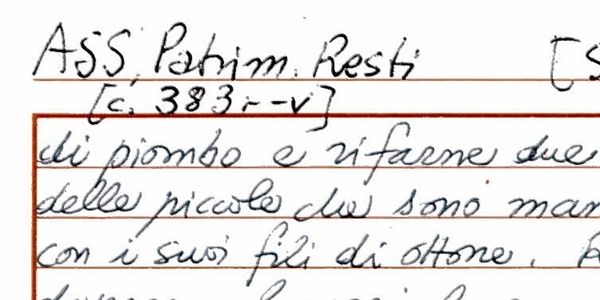 ASS, Patrim. Resti [S
[c. 383r-v]
di piombo e rifarne due
delle piccole che sono man
con i suoi fili di ottone.